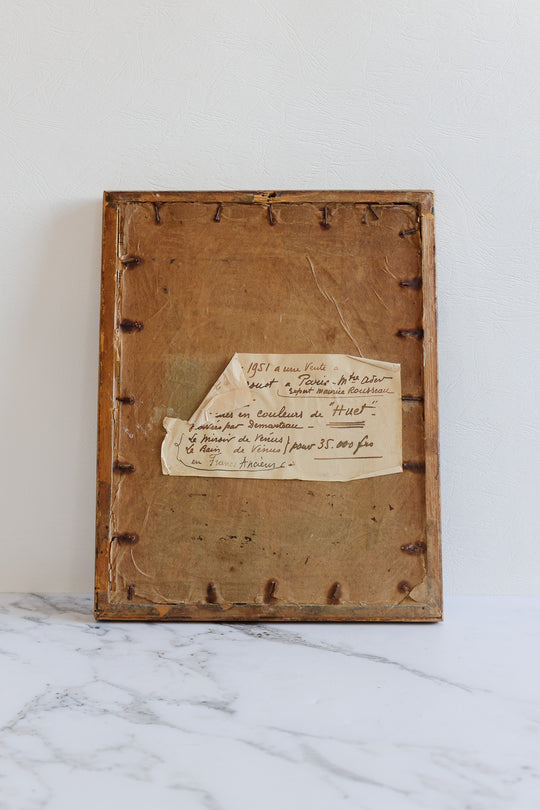 1951 a une Vente a
a Paris - Mtre Ader
Expert Maurice Rousseau
en couleurs de "Huet"
par Demarteau -
Le miroir de Vénus
Le Bain de Vénus } pour 35.000 frs
en Francs Anciens